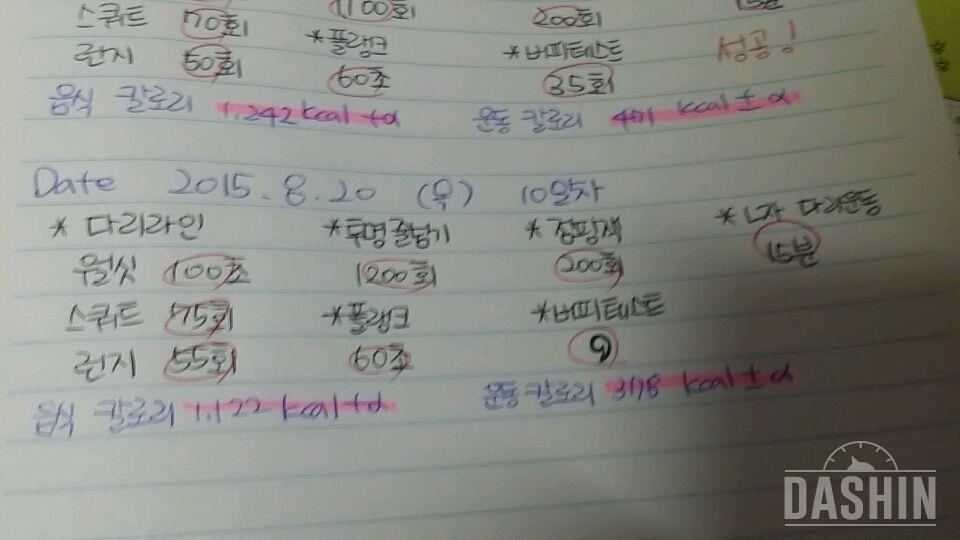 1100회 200회 15분
스쿼트 70회
*플랭크 *버피테스트 성공!
런지 50회 60초 35회
음식 칼로리 1,242 kcal +α 운동 칼로리 471 kcal ± α
Date 2015. 8. 20 (목) 10일차
* 다리라인 *투명줄넘기 *점핑잭 *L자 다리운동
월싯 100초 1200회 200회 15분
스쿼트 75회 *플랭크 *버피테스트
런지 55회 60초
음식 칼로리 1,122 kcal +α 운동 칼로리 378 kcal ± α
DASHIN